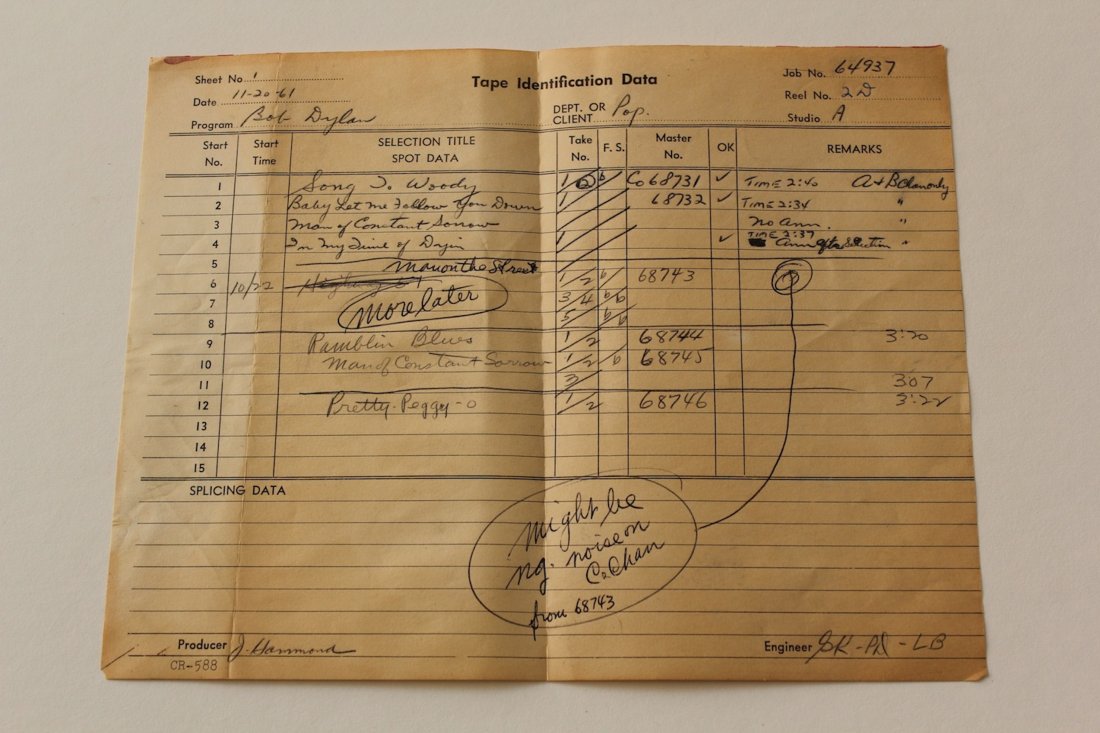 Sheet No. 1
Tape Identification Data
Job No. 64937
Date 11-20-61
DEPT. OR CLIENT Pop.
Reel No. 2D
Program Bob Dylan
Studio A
Start No. Start Time SELECTION TITLE SPOT DATA Take No. F. S. Master No. OK REMARKS
1 Song To Woody 1 2 b Co 68731 ✓ TIME 2:40 A + B Chan only
2 Baby Let Me Follow You Down 1 68732 ✓ TIME 2:34 "
3 Man of Constant Sorrow No Ann. "
4 In My Time of Dyin 1 ✓ TIME 2:37 Ann after Selection "
5 Man on the Street
6 10/22 Highway 51 1/2 b/ 68743
7 More later 3/4 b/b
8 5/ b/b
9 Ramblin Blues 1/2 68744 3:20
10 Man of Constant Sorrow 1/2 b 68745
11 3/ 307
12 Pretty-Peggy-o 1/2 68746 3:22
13
14
15
SPLICING DATA
Might be
ng. noise on
C. Chan
from 68743
Producer J. Hammond
Engineer GK-PD-LB
CR-588